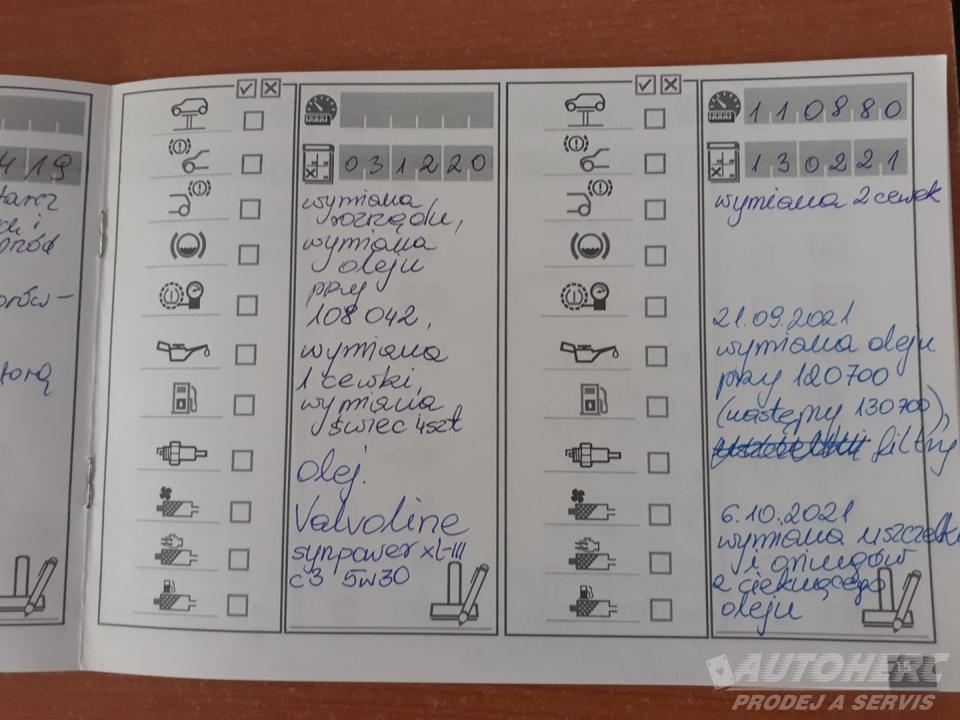 419
031220
wymiana
rozrządu,
wymiana
oleju
przy
108 042,
wymiana
1 cewki,
wymiana
świec 4szt
olej.
Valvoline
synpower xl-III
c3 5w30
110880
130221
wymiana 2 cewek
21.09.2021
wymiana oleju
przy 120700
(następny 130700),
filtry
6.10.2021
wymiana uszczelki
i oringów
z cieknącego
oleju
AUTOHERC
PRODEJ A SERVIS